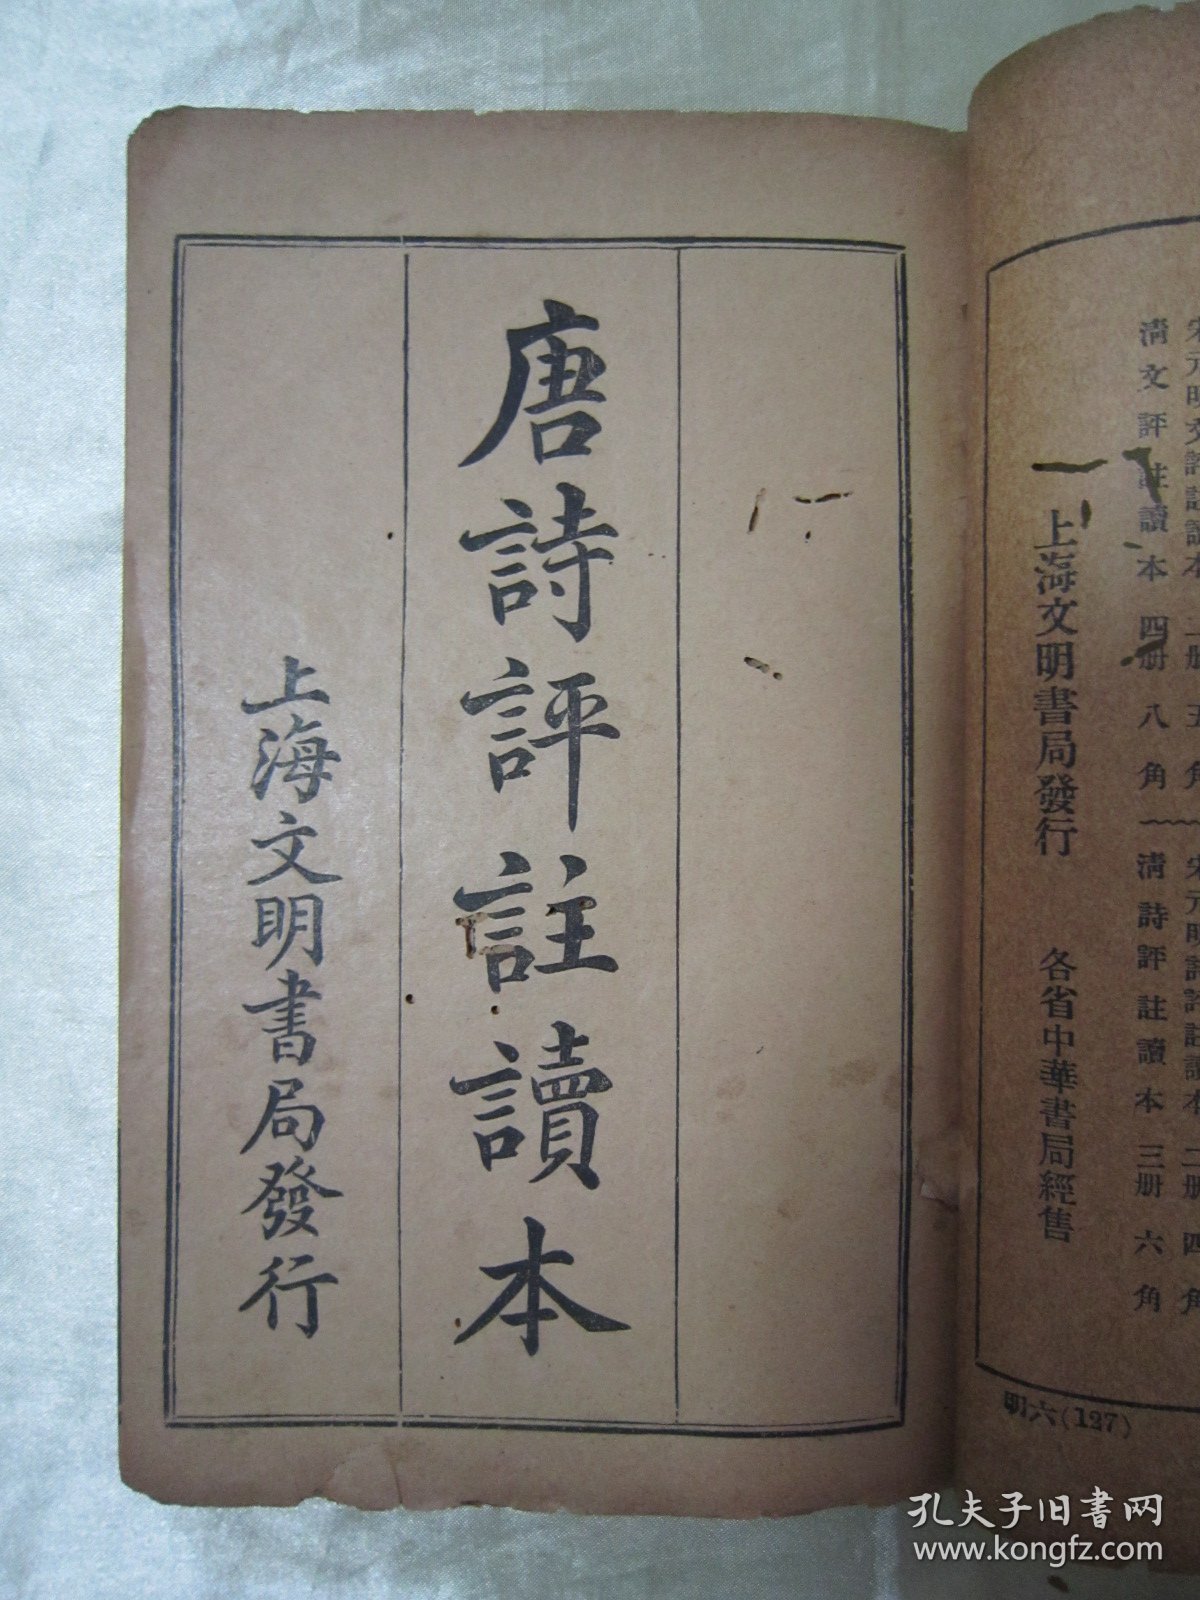 宋元明文評註讀本二册五角
宋元明詩評註讀本二册四角
清文評註讀本四册八角
清詩評註讀本三册六角
上海文明書局發行
各省中華書局經售
明六(127)
唐詩評註讀本
上海文明書局發行
孔夫子旧书网
www.kongfz.com